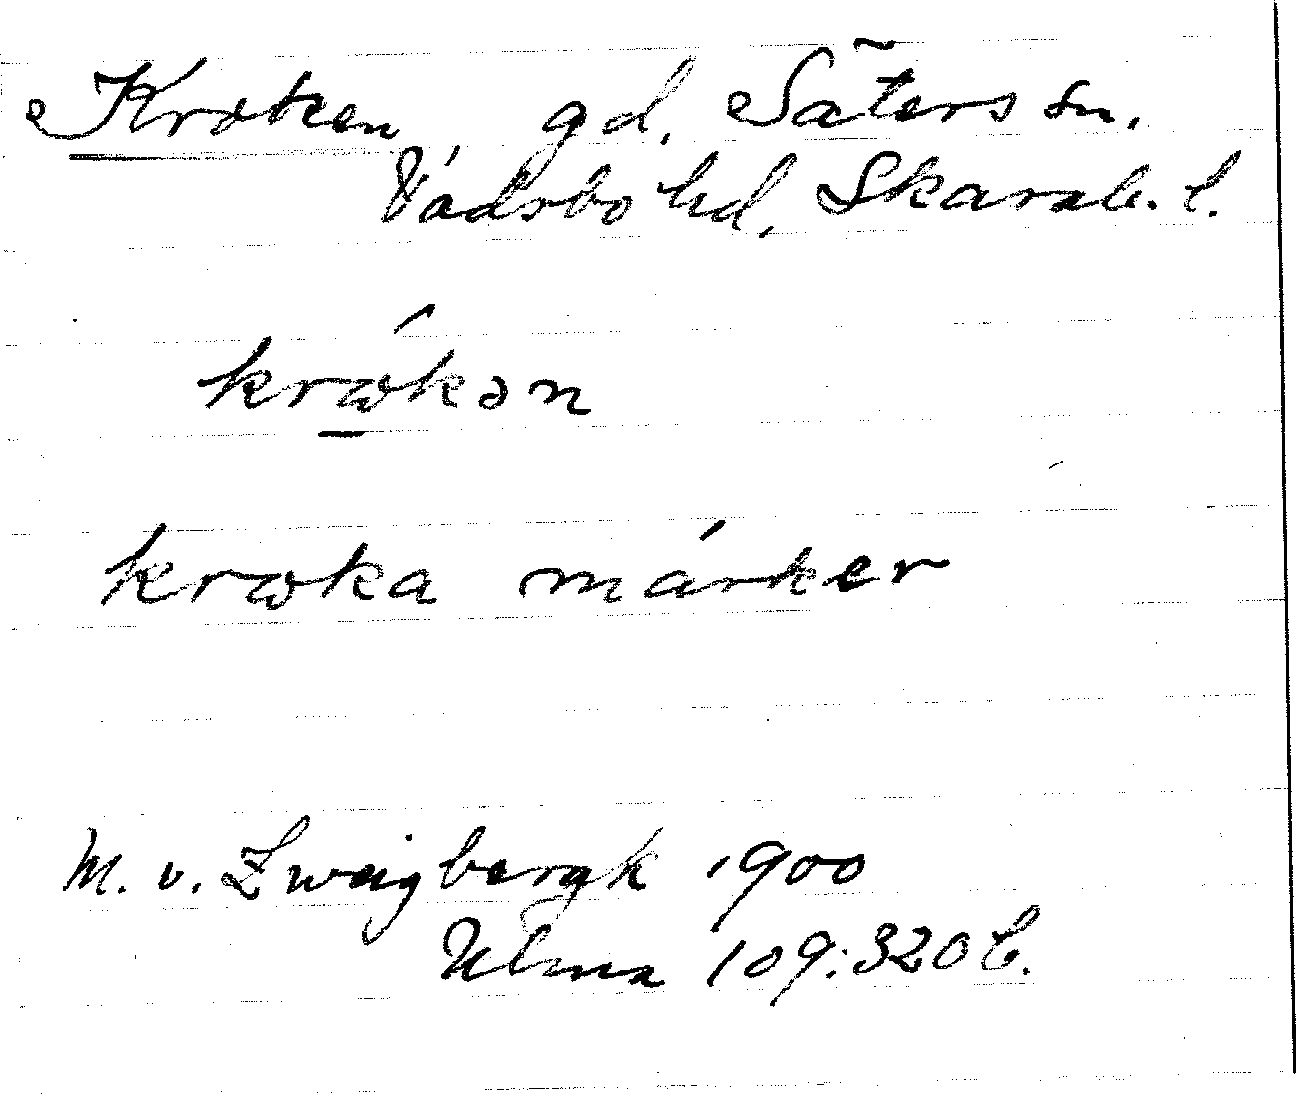 Kroken gd, Säters sn.
Vadsbo hd, Skarab. l.
krωkən
krωka márker
M. v. Zweigbergk 1900
Ulma 109:320 b.